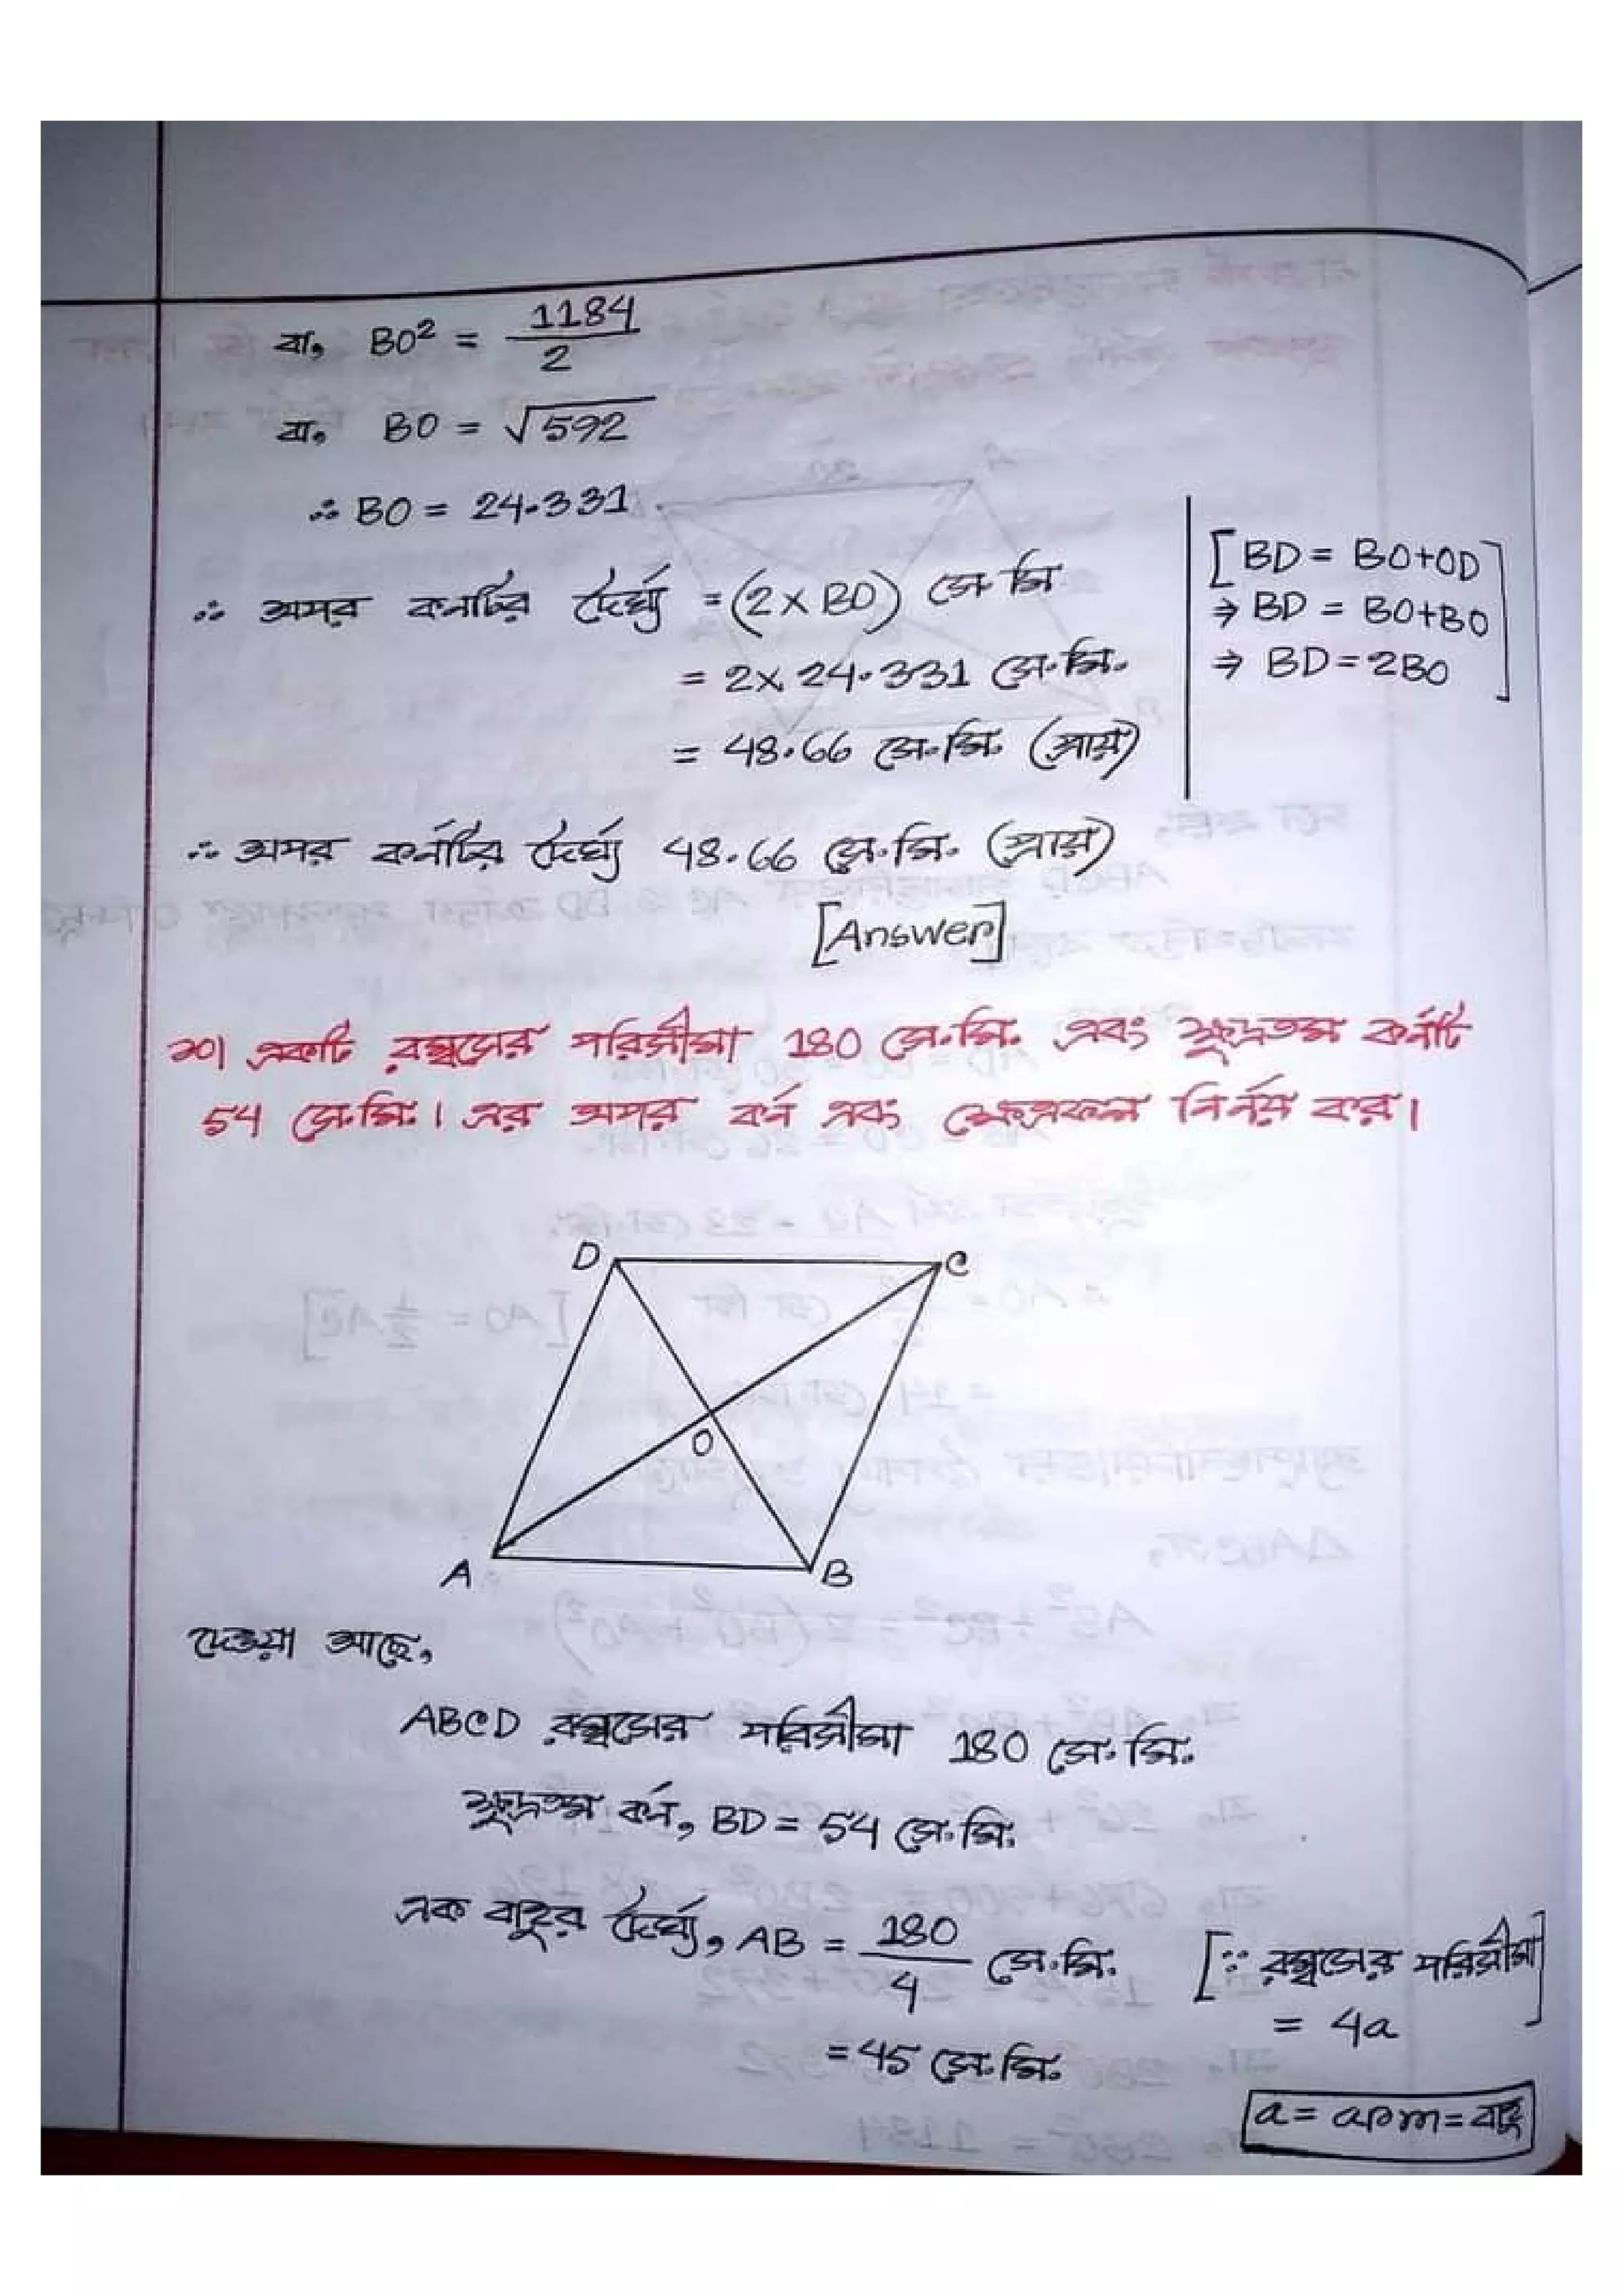 বা, BO² = 1184/2
বা, BO = √592
∴ BO = 24.331
∴ অপর কর্নটির দৈর্ঘ্য = (2 × BO) সে. মি.
= 2 × 24.331 সে. মি.
= 48.66 সে. মি. (প্রায়)
[BD = BO+OD
⇒ BD = BO+BO
⇒ BD = 2BO]
∴ অপর কর্নটির দৈর্ঘ্য 48.66 সে. মি. (প্রায়)
[Answer]
১০। একটি রম্বসের পরিসীমা 180 সে. মি. এবং ক্ষুদ্রতম কর্নটি
54 সে. মি. । এর অপর কর্ন এবং ক্ষেত্রফল নির্নয় কর।
D C
O
A B
দেওয়া আছে,
ABCD রম্বসের পরিসীমা 180 সে. মি.
ক্ষুদ্রতম কর্ন, BD = 54 সে. মি.
এক বাহুর দৈর্ঘ্য, AB = 180/4 সে. মি. [∵ রম্বসের পরিসীমা
= 4a]
= 45 সে. মি.
a = arm = বাহু